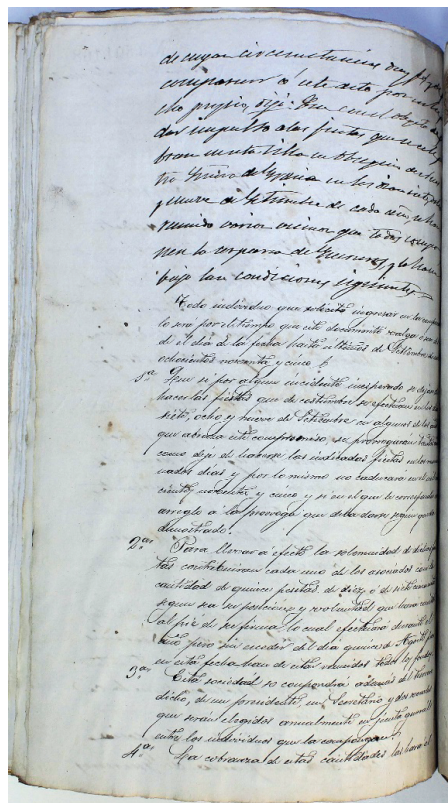 de cuyas circunstancias doy fé, y
comparecen á este acto por su
cho propio, dijo: Que con el objeto de
dar impulso a las fiestas que se cele
bran en esta Villa en obsequio de
tra Señora de Gracia en los dias siete,
y nueve de Setiembre de cada año, se han
reunido varios vecinos que todos compo
nen la comparsa de y lo hacen
bajo las condiciones siguientes
Todo individuo que solicite ingresar en la
lo será por el tiempo que este documento valga
de el dia de la fecha hasta ultimos de Setiembre de
ochocientos noventa y cinco
1ª Que si por algun incidente inesperado se dejaran
hacer las fiestas que de costumbre se efectuan en los dias
siete, ocho y nueve de Setiembre en algunos de los años
que abraza este compromiso, se prorrogarán tantos
como deje de hacerse las indicadas fiestas en los
nados dias y por lo mismo no caducará en el
cientos noventa y cinco y si en el que le corresponda
arreglo a la proroga que deba darse segun queda
demostrado.
2ª Para llevar á efecto la solemnidad de dichas fies
tas contribuiran cada uno de los asociados con la
cantidad de quince pesetas, de diez, ó de siete cincuenta
segun sea su posicion y voluntad que hara constar
al pie de su firma, lo cual efectuará durante el
año pero sin esceder del dia quince de Agosto, pues
en esta fecha han de estar reunidos todos los fondos
3ª Esta sociedad se compondrá ademas del
dicho, de un presidente, un Secretario y dos vocales
que serán elegidos anualmente en junta general
entre los individuos que la compongan.
4ª La cobranza de estas cantidades las hará el